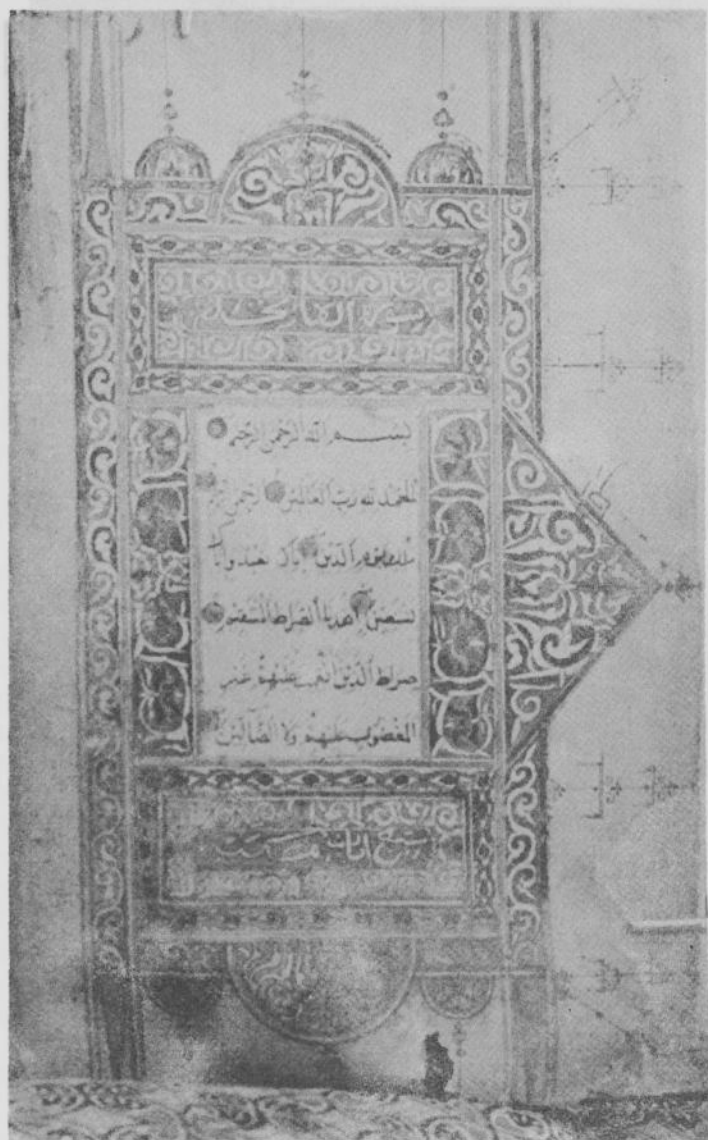 سورة الفاتحة
بسم الله الرحمن الرحيم
الحمد لله رب العالمين الرحمن الرحيم
ملك يوم الدين إياك نعبد وإياك
نستعين اهدنا الصراط المستقيم
صراط الذين أنعمت عليهم غير
المغضوب عليهم ولا الضالين
سبع آيات